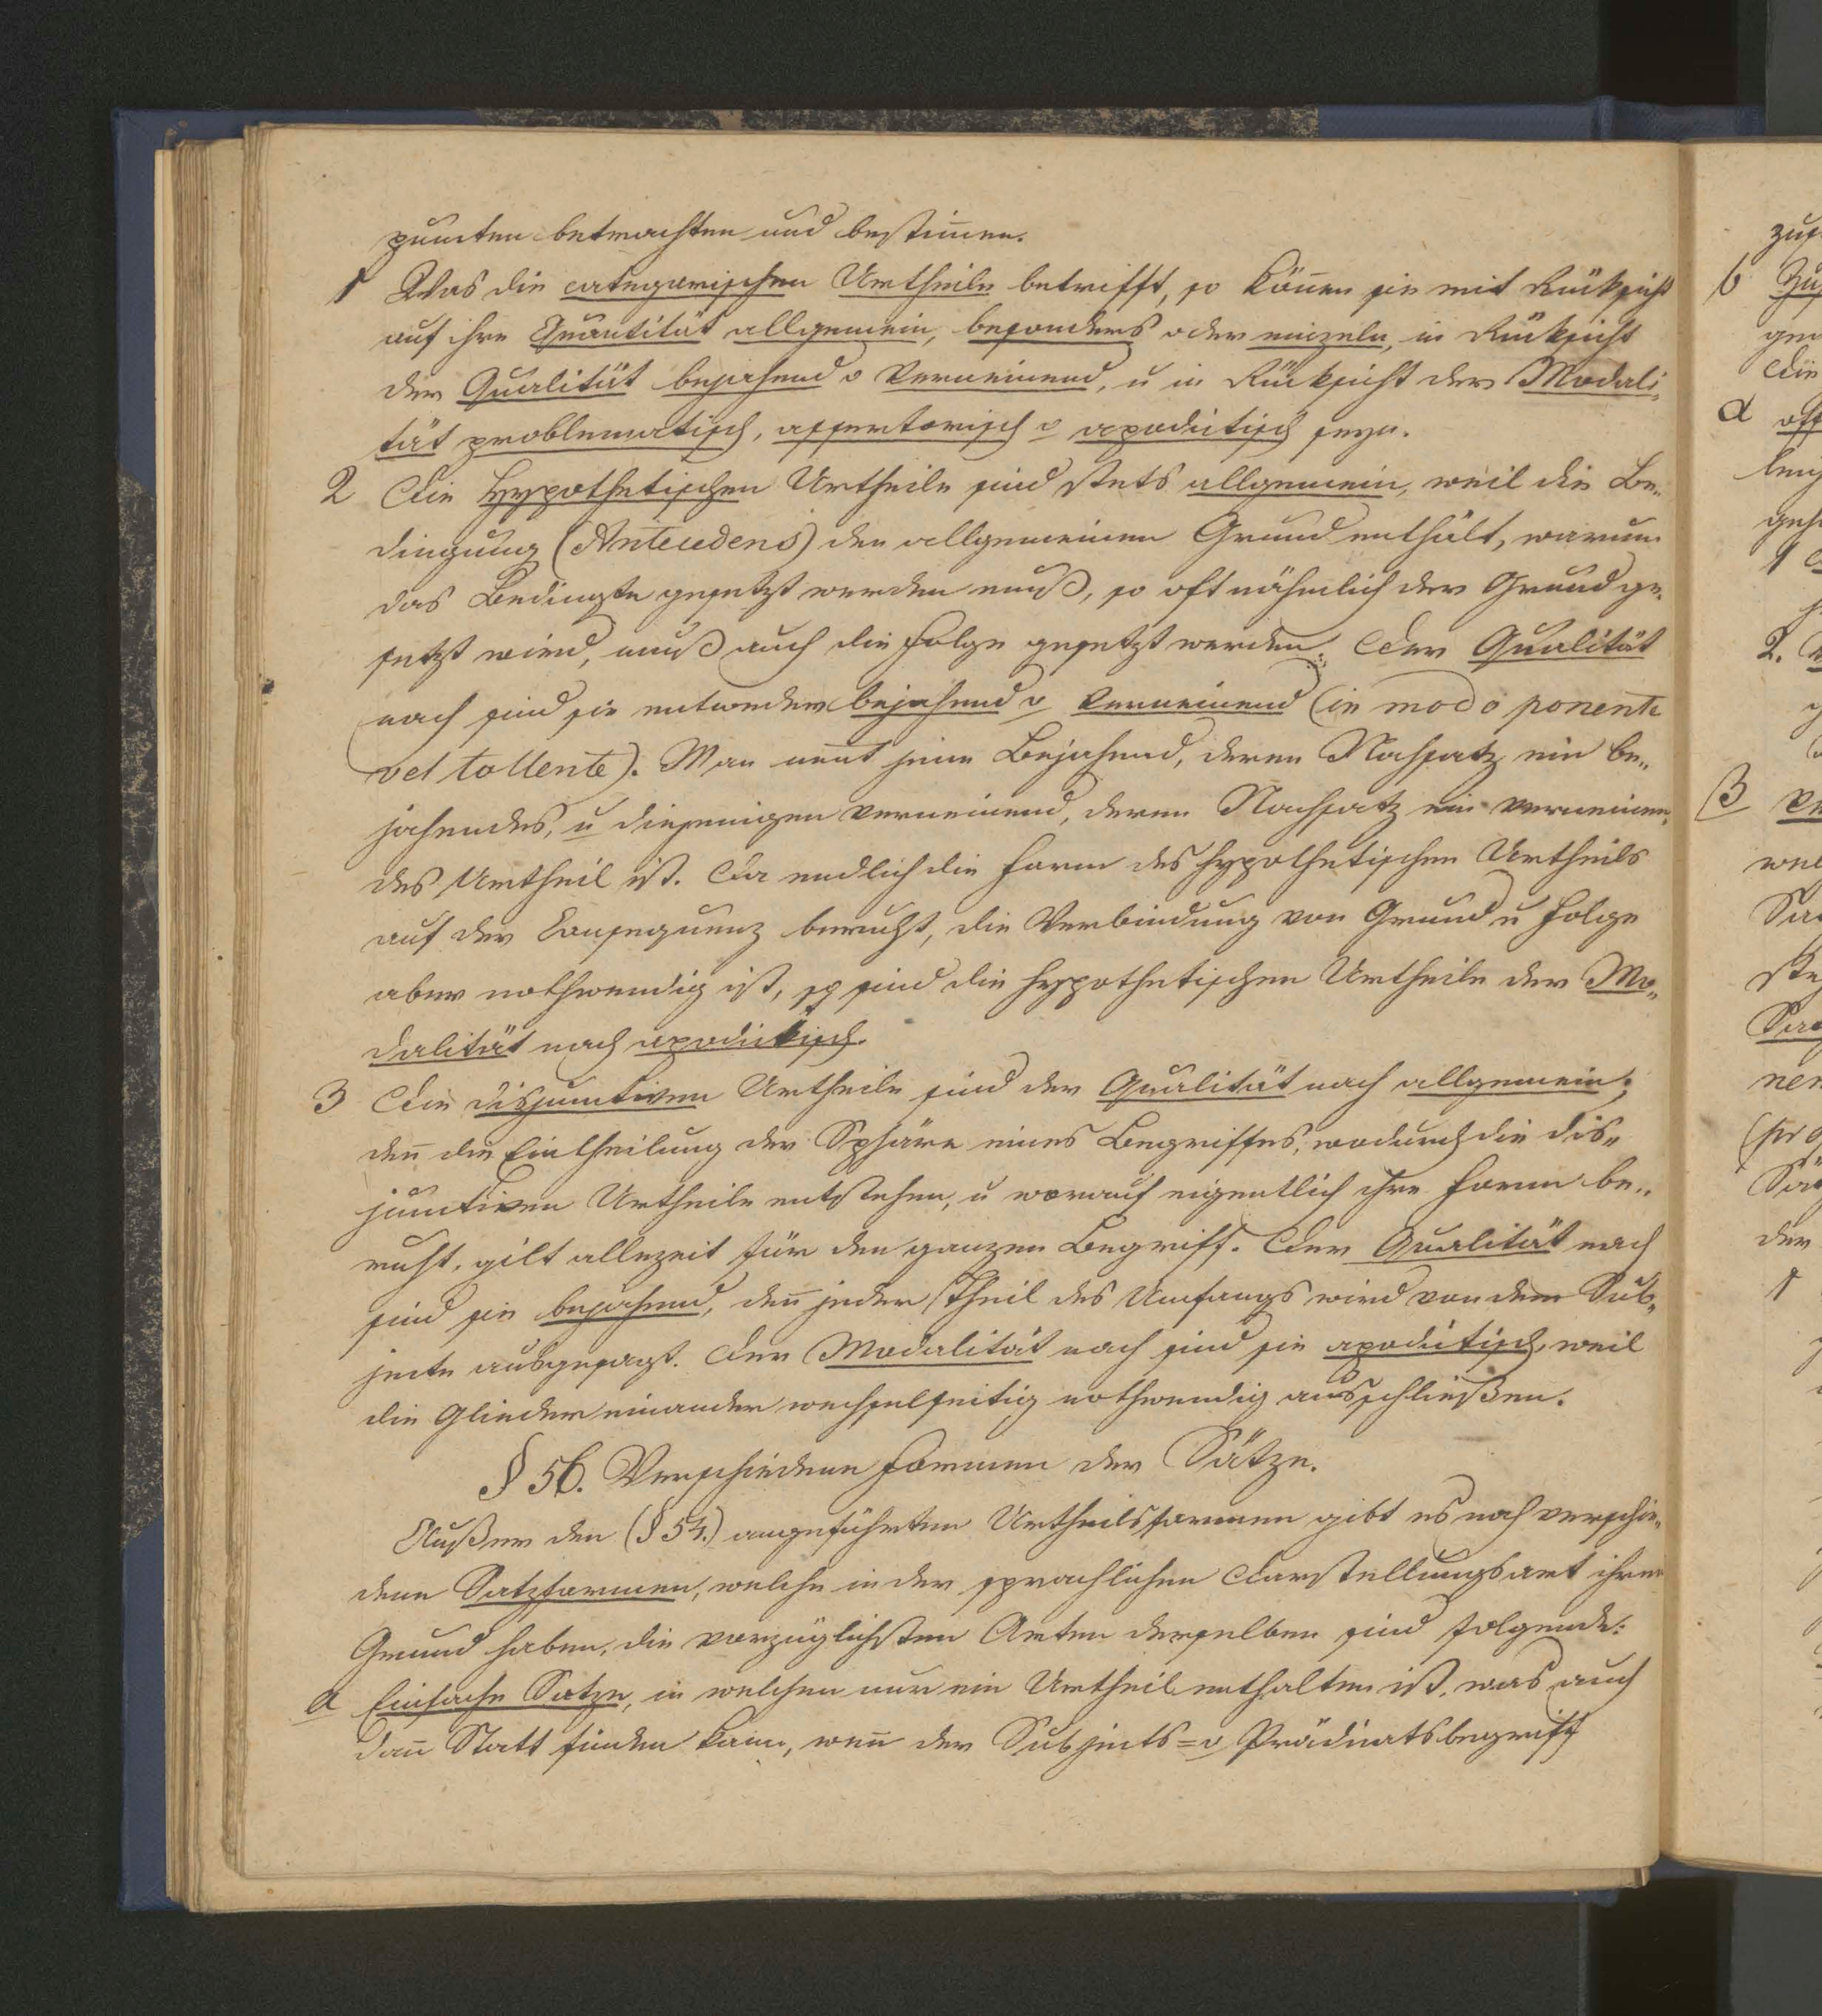 puncten betrachten und bestim̄en.
1 Was die categorischen Urtheile betrifft, so kön̄en sie mit Rücksicht
auf ihre Quantität allgemein, besonders oder einzeln, in Rücksicht
der Qualität bejahend o verneinend, u in Rücksicht der Modali„
tät problematisch, assertorisch o apodictisch seyn.
2 Die Hypothetischen Urtheile sind stets allgemein, weil die Be„
dingung (Antecedens) den allgemeinen Grund enthält, warum
das Bedingte gesetzt werden muß, so oft nähmlich der Grund ge„
setzt wird, muß auch die Folge gesetzt werden. Der Qualität
nach sind sie entweder bejahend o verneinend (in modo ponente
vel tollente). Man nen̄t jene Bejahend, deren Nachsatz ein be„
jahendes, u diejenigen verneinend, deren Nachsatz ein verneinen„
des Urtheil ist. Da endlich die Form des hypothetischen Urtheils
auf der Consequenz beruht, die Verbindung von Grund u Folge
aber nothwendig ist, so sind die hypothetischen Urtheile der Mo„
dalität nach apodiktisch.
3 Die disjunctiven Urtheile sind der Qualität nach allgemein;
den̄ die Eintheilung der Sphäre eines Begriffes, wodurch die dis„
junctiven Urtheile entstehen, u worauf eigentlich ihre Form be„
ruht, gilt allezeit für den ganzen Begriff. Der Qualität nach
sind sie bejahend, den̄ jeder Theil des Umfangs wird von dem Sub„
jecte ausgesagt. Der Modalität nach sind sie apodictisch, weil
die Glieder einander wechselseitig nothwendig ausschließen.
§ 56. Verschiedene Formen der Sätze.
Außer den (§ 54.) angeführten Urtheilsformen gibt es noch verschie„
dene Satzformen, welche in der sprachlichen Darstellungsart ihren
Grund haben, die vorzüglichsten Arten derselben sind folgende:
a Einfache Sätze, in welchen nur ein Urtheil enthalten ist, was auch
dan̄ Statt finden kann, wen̄ der Subjects= o Prädicatsbegriff